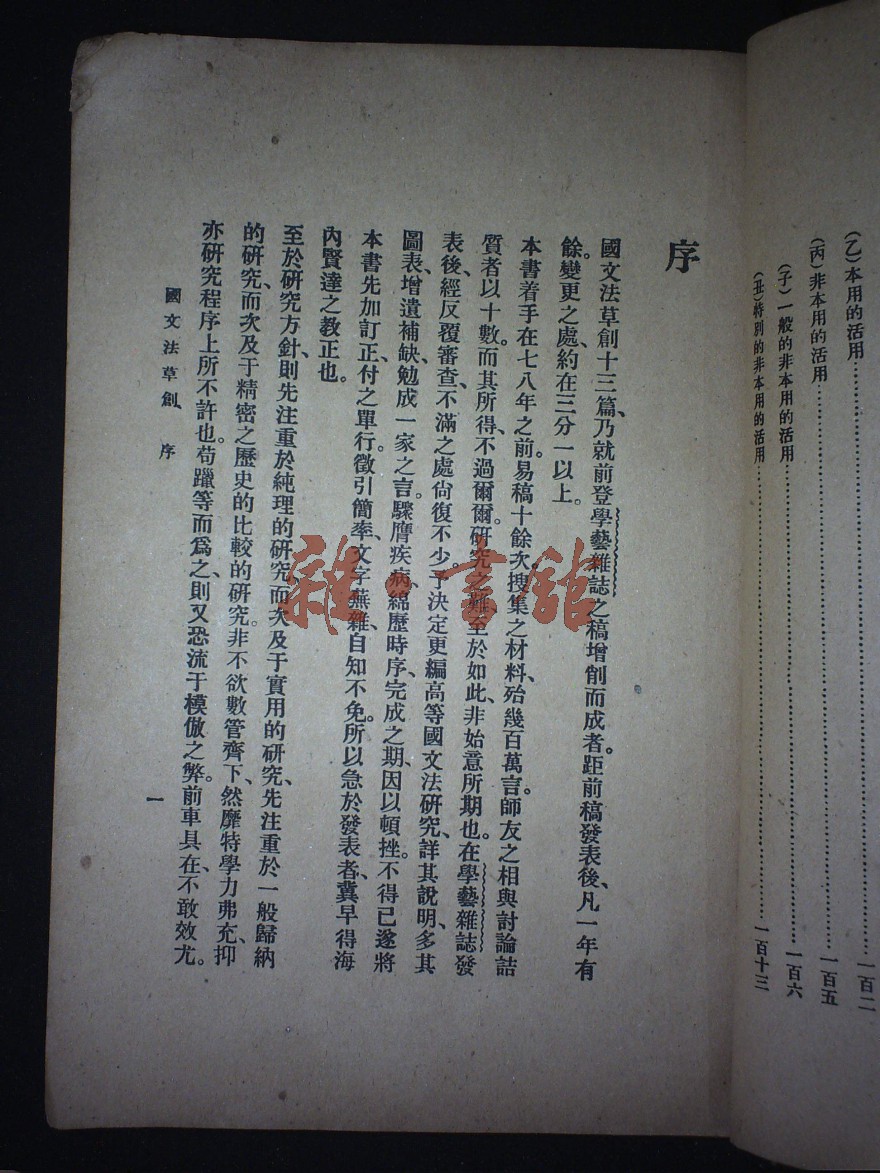 (乙)本用的活用……………………一百二
(丙)非本用的活用……………………一百五
(子)一般的非本用的活用……………………一百六
(丑)特別的非本用的活用……………………一百十三
序
國文法草創十三篇、乃就前登學藝雜誌之稿增削而成者。距前稿發表後、凡一年有
餘。變更之處、約在三分一以上。
本書着手在七八年之前。易稿十餘次。搜集之材料、殆幾百萬言。師友之相與討論詰
質者以十數。而其所得、不過爾爾。研究之難至於如此、非始意所期也。在學藝雜誌發
表後、經反覆審查、不滿之處尙復不少。予決定更編高等國文法研究、詳其說明、多其
圖表、增遺補缺、勉成一家之言。驟膺疾病、綿歷時序、完成之期、因以頓挫。不得已遂將
本書先加訂正、付之單行。徵引簡率、文字蕪雜、自知不免。所以急於發表者、冀早得海
內賢達之教正也。
至於研究方針、則先注重於純理的研究、而次及于實用的研究、先注重於一般歸納
的研究、而次及于精密之歷史的比較的研究。非不欲數管齊下、然靡特學力弗充、抑
亦研究程序上所不許也。苟躐等而爲之、則又恐流于模倣之弊。前車具在、不敢效尤。
國文法草創 序
一
雜·書館